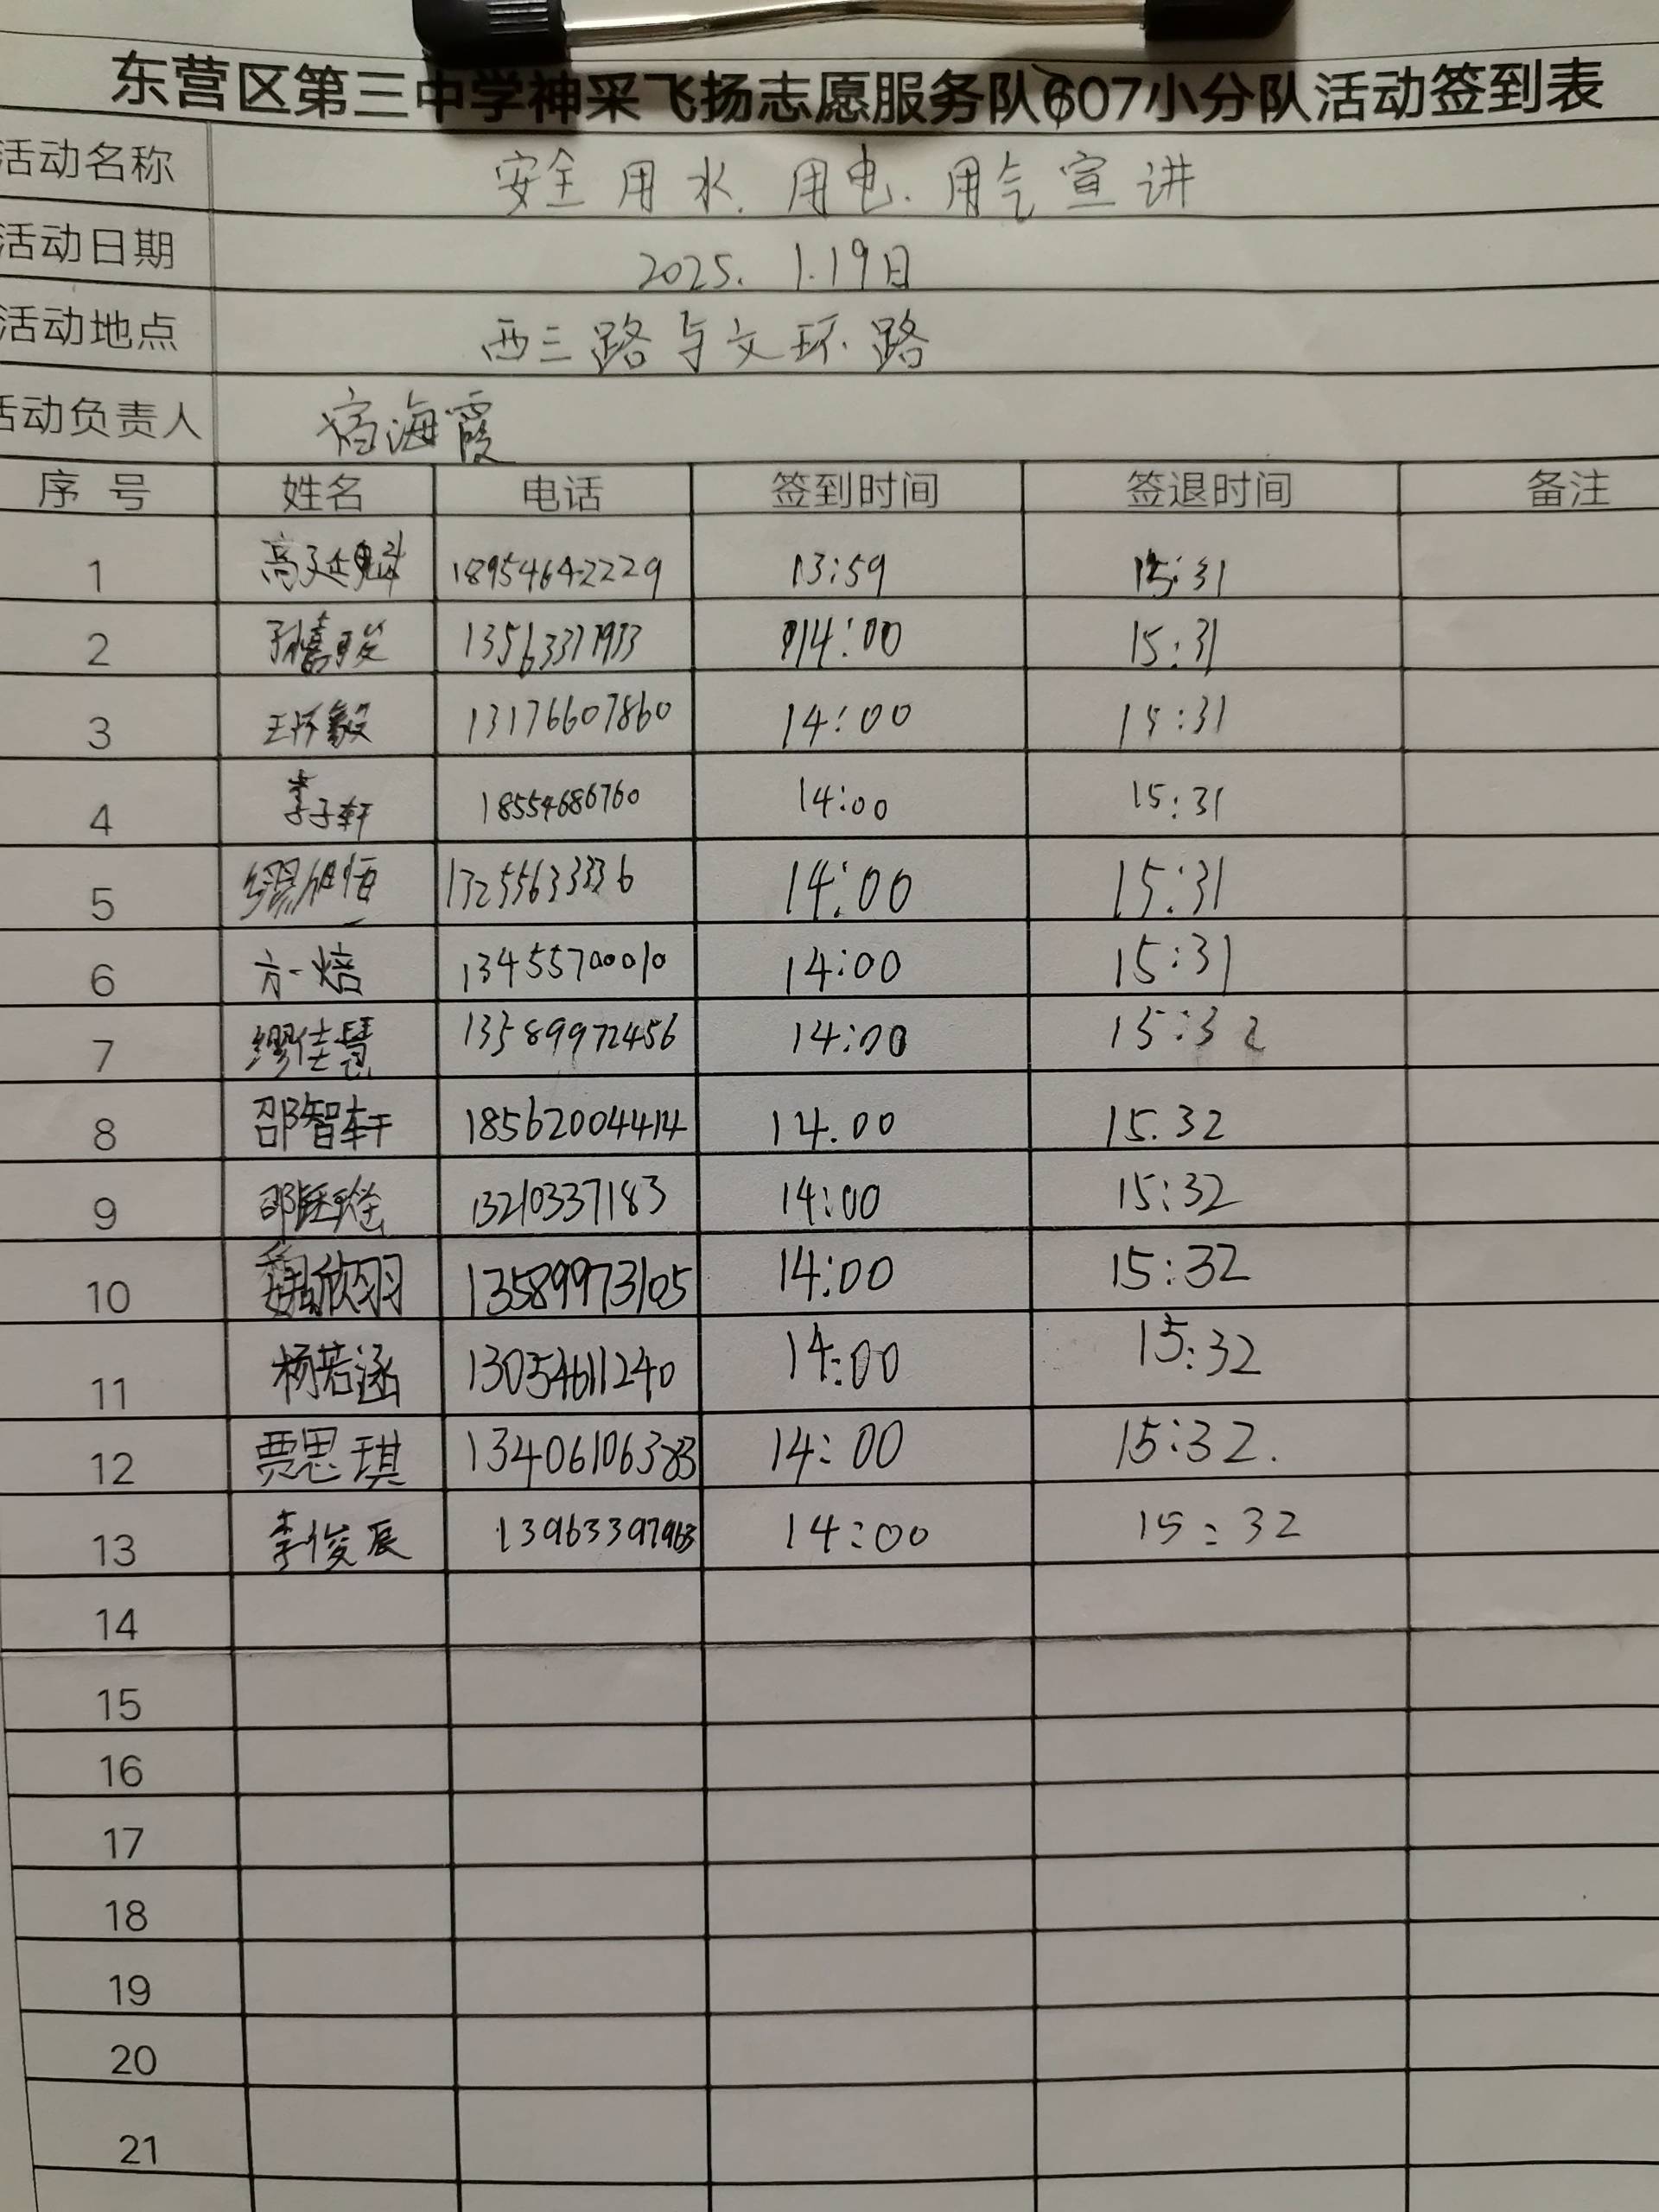 东营区第三中学神采飞扬志愿服务队607小分队活动签到表
活动名称 安全用水、用电、用气宣讲
活动日期 2025. 1.19日
活动地点 西三路与文环路
活动负责人 宿海霞
序 号 姓名 电话 签到时间 签退时间 备注
1 高廷魁 18954642229 13:59 15:31
2 13563371933 14:00 15:31
3 13176607860 14:00 15:31
4 李子轩 18554686760 14:00 15:31
5 13255633336 14:00 15:31
6 方一焙 13455700010 14:00 15:31
7 缪佳慧 13589972456 14:00 15:32
8 邵智轩 18562004414 14.00 15.32
9 13210337183 14:00 15:32
10 魏欣羽 13589973105 14:00 15:32
11 杨若涵 13054611240 14:00 15:32
12 贾思琪 13406106383 14:00 15:32.
13 李俊辰 13963397963 14:00 15:32
14
15
16
17
18
19
20
21